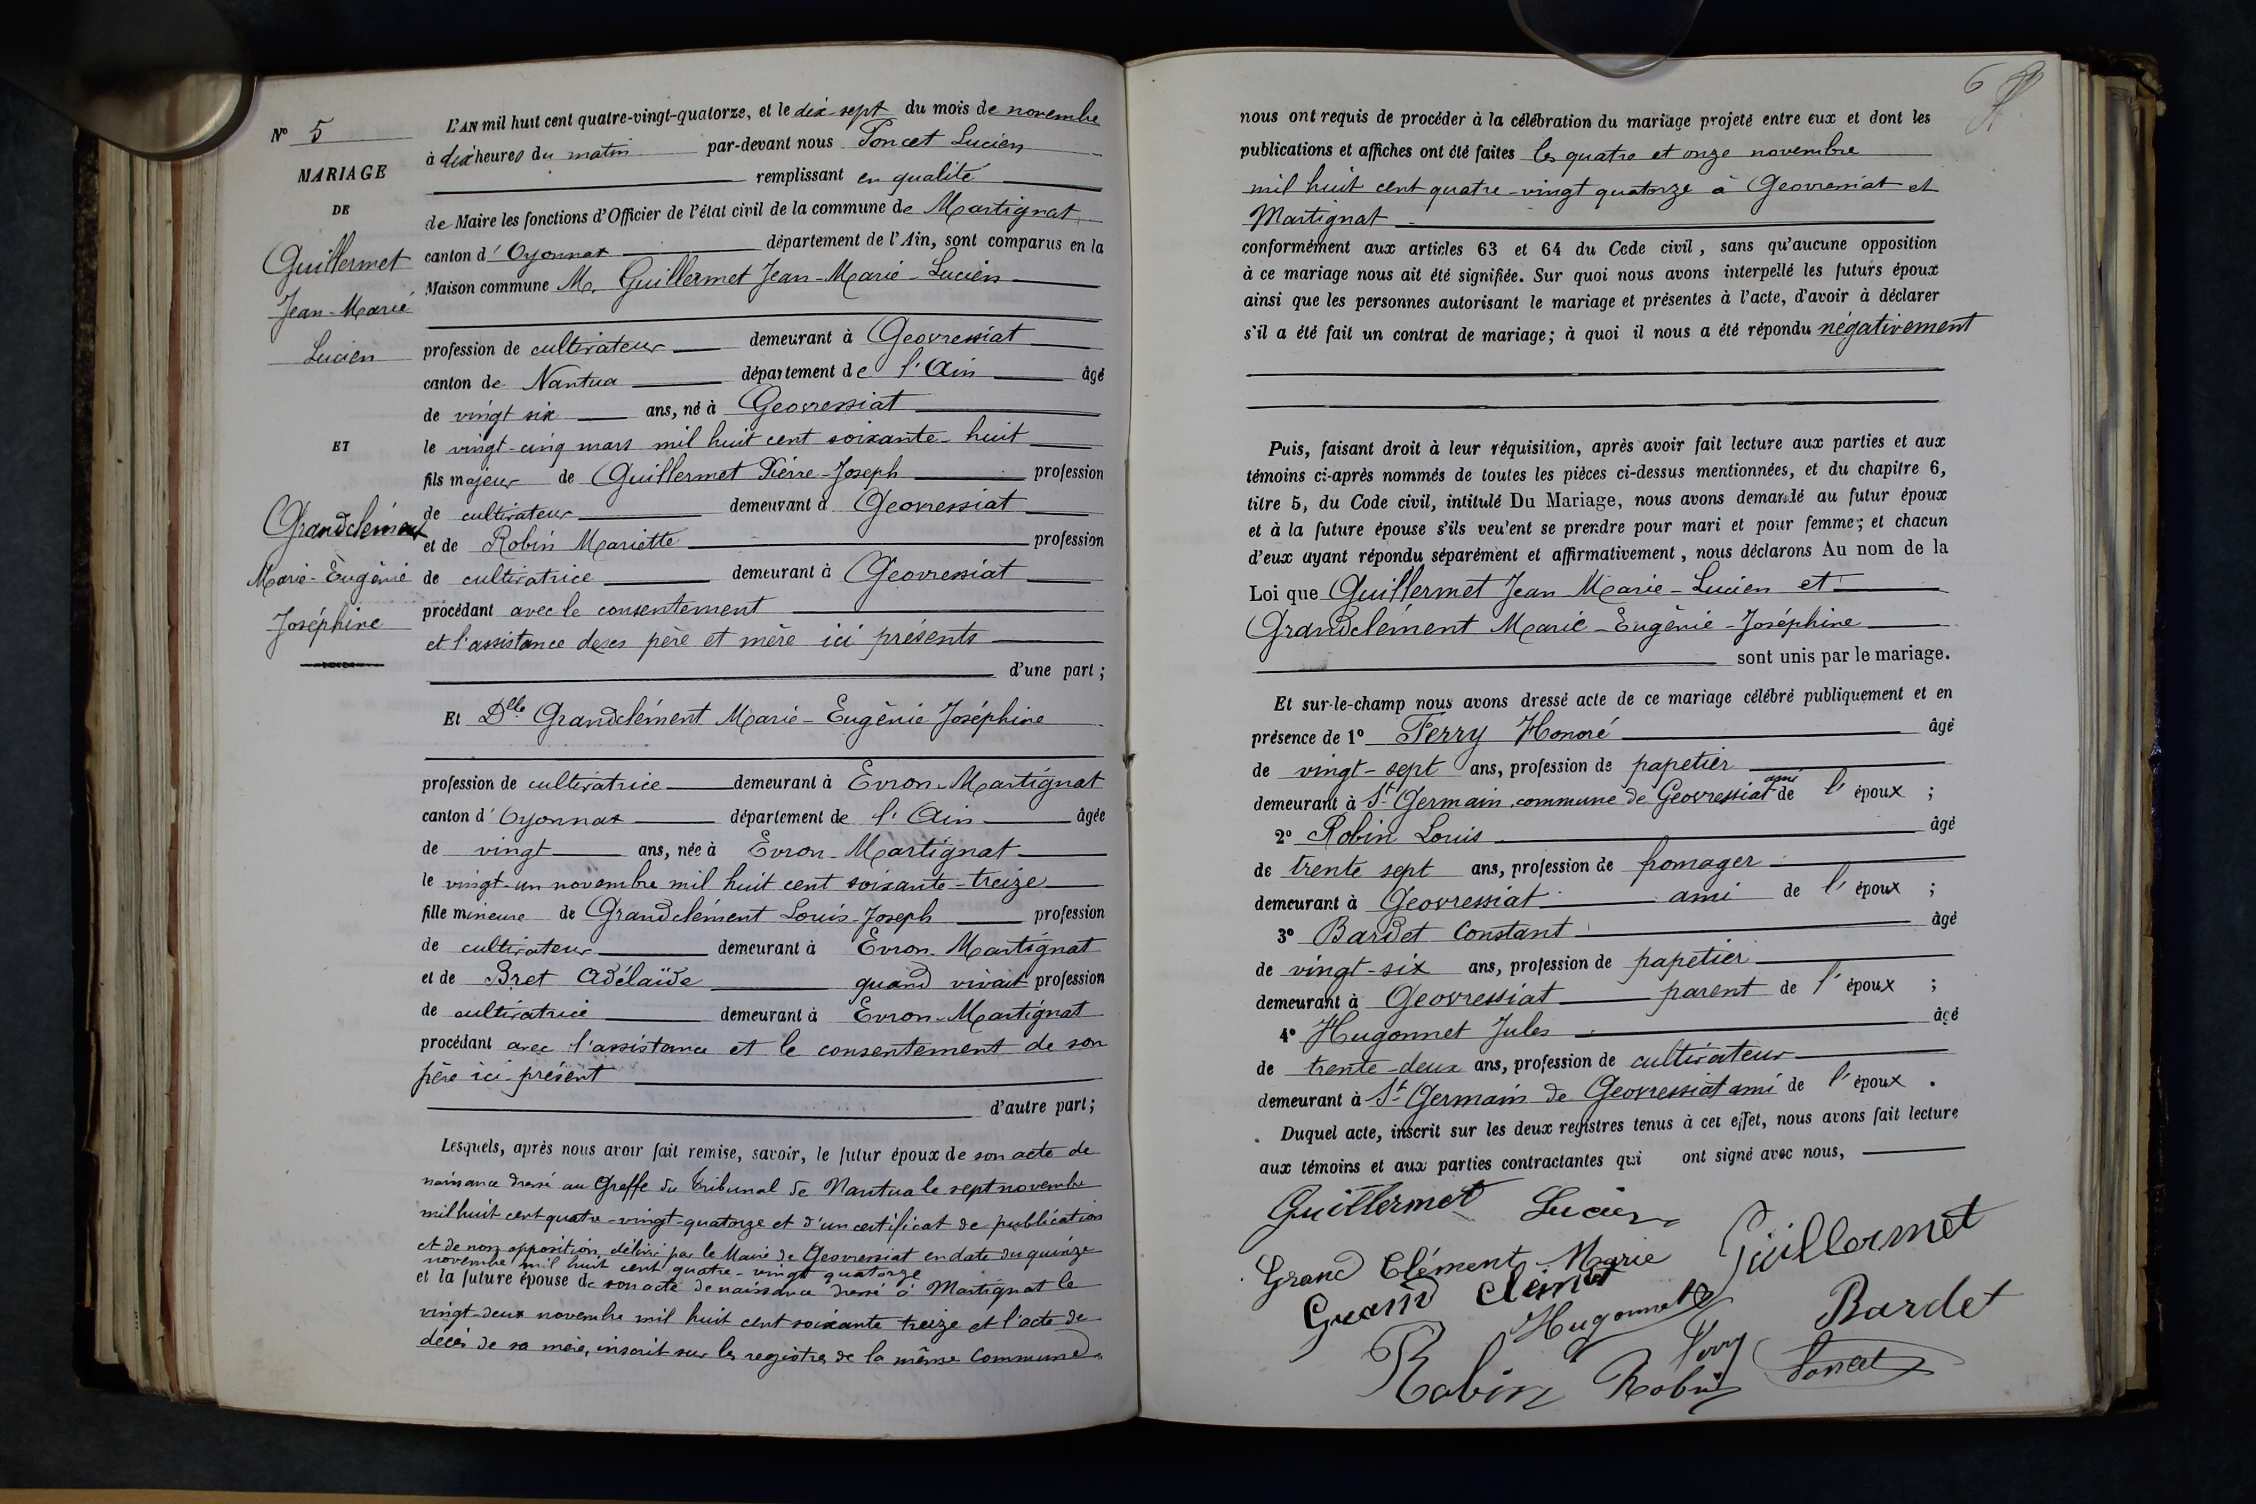 N° 5
MARIAGE
DE
Guillermet
Jean-Marie
Lucien
ET
Grandclément
Marie-Eugénie
Joséphine
L'AN mil huit cent quatre-vingt-quatorze, et le dix-sept du mois de novembre
à dix heures du matin par-devant nous Poncet Lucien
remplissant en qualité
de Maire les fonctions d'Officier de l'état civil de la commune de Martignat
canton d'Oyonnax département de l'Ain, sont comparus en la
Maison commune M. Guillermet Jean-Marie-Lucien
profession de cultivateur demeurant à Geovressiat
canton de Nantua département de l'Ain âgé
de vingt six ans, né à Geovressiat
le vingt-cinq mars mil huit cent soixante-huit
fils majeur de Guillermet Pierre-Joseph profession
de cultivateur demeurant à Geovressiat
et de Robin Mariette profession
de cultivatrice demeurant à Geovressiat
procédant avec le consentement
et l'assistance de ses père et mère ici présents
d'une part;
Et Dlle Grandclément Marie-Eugénie Joséphine
profession de cultivatrice demeurant à Evron-Martignat
canton d'Oyonnax département de l'Ain âgée
de vingt ans, née à Evron-Martignat
le vingt-un novembre mil huit cent soixante-treize
fille mineure de Grandclément Louis-Joseph profession
de cultivateur demeurant à Evron-Martignat
et de Bret Adélaïde quand vivait profession
de cultivatrice demeurant à Evron-Martignat
procédant avec l'assistance et le consentement de son
père ici présent
d'autre part;
Lesquels, après nous avoir fait remise, savoir, le futur époux de son acte de
naissance dressé au Greffe du Tribunal de Nantua le sept novembre
mil huit cent quatre-vingt-quatorze et d'un certificat de publication
et de non opposition délivré par le Maire de Geovressiat en date du quinze
novembre mil huit cent quatre-vingt quatorze
et la future épouse de son acte de naissance dressé à Martignat le
vingt-deux novembre mil huit cent soixante treize et l'acte de
décès de sa mère, inscrit sur les registres de la même commune
6
nous ont requis de procéder à la célébration du mariage projeté entre eux et dont les
publications et affiches ont été faites les quatre et onze novembre
mil huit cent quatre-vingt quatorze à Geovressiat et
Martignat
conformément aux articles 63 et 64 du Code civil, sans qu'aucune opposition
à ce mariage nous ait été signifiée. Sur quoi nous avons interpellé les futurs époux
ainsi que les personnes autorisant le mariage et présentes à l'acte, d'avoir à déclarer
s'il a été fait un contrat de mariage; à quoi il nous a été répondu négativement
Puis, faisant droit à leur réquisition, après avoir fait lecture aux parties et aux
témoins ci-après nommés de toutes les pièces ci-dessus mentionnées, et du chapitre 6,
titre 5, du Code civil, intitulé Du Mariage, nous avons demandé au futur époux
et à la future épouse s'ils veulent se prendre pour mari et pour femme; et chacun
d'eux ayant répondu séparément et affirmativement, nous déclarons Au nom de la
Loi que Guillermet Jean Marie-Lucien et
Grandclément Marie-Eugénie-Joséphine
sont unis par le mariage.
Et sur-le-champ nous avons dressé acte de ce mariage célébré publiquement et en
présence de 1° Ferry Honoré âgé
de vingt-sept ans, profession de papetier
demeurant à St Germain commune de Geovressiat ami de l'époux;
2° Robin Louis âgé
de trente sept ans, profession de fromager
demeurant à Geovressiat ami de l'époux;
3° Bardet Constant âgé
de vingt-six ans, profession de papetier
demeurant à Geovressiat parent de l'époux;
4° Hugonnet Jules âgé
de trente-deux ans, profession de cultivateur
demeurant à St Germain de Geovressiat ami de l'époux.
Duquel acte, inscrit sur les deux registres tenus à cet effet, nous avons fait lecture
aux témoins et aux parties contractantes qui ont signé avec nous,
Guillermet Lucien
Grand Clément Marie Guillermet
Grand Clément
Hugonnet Bardet
Robin Robin Ferry Poncet